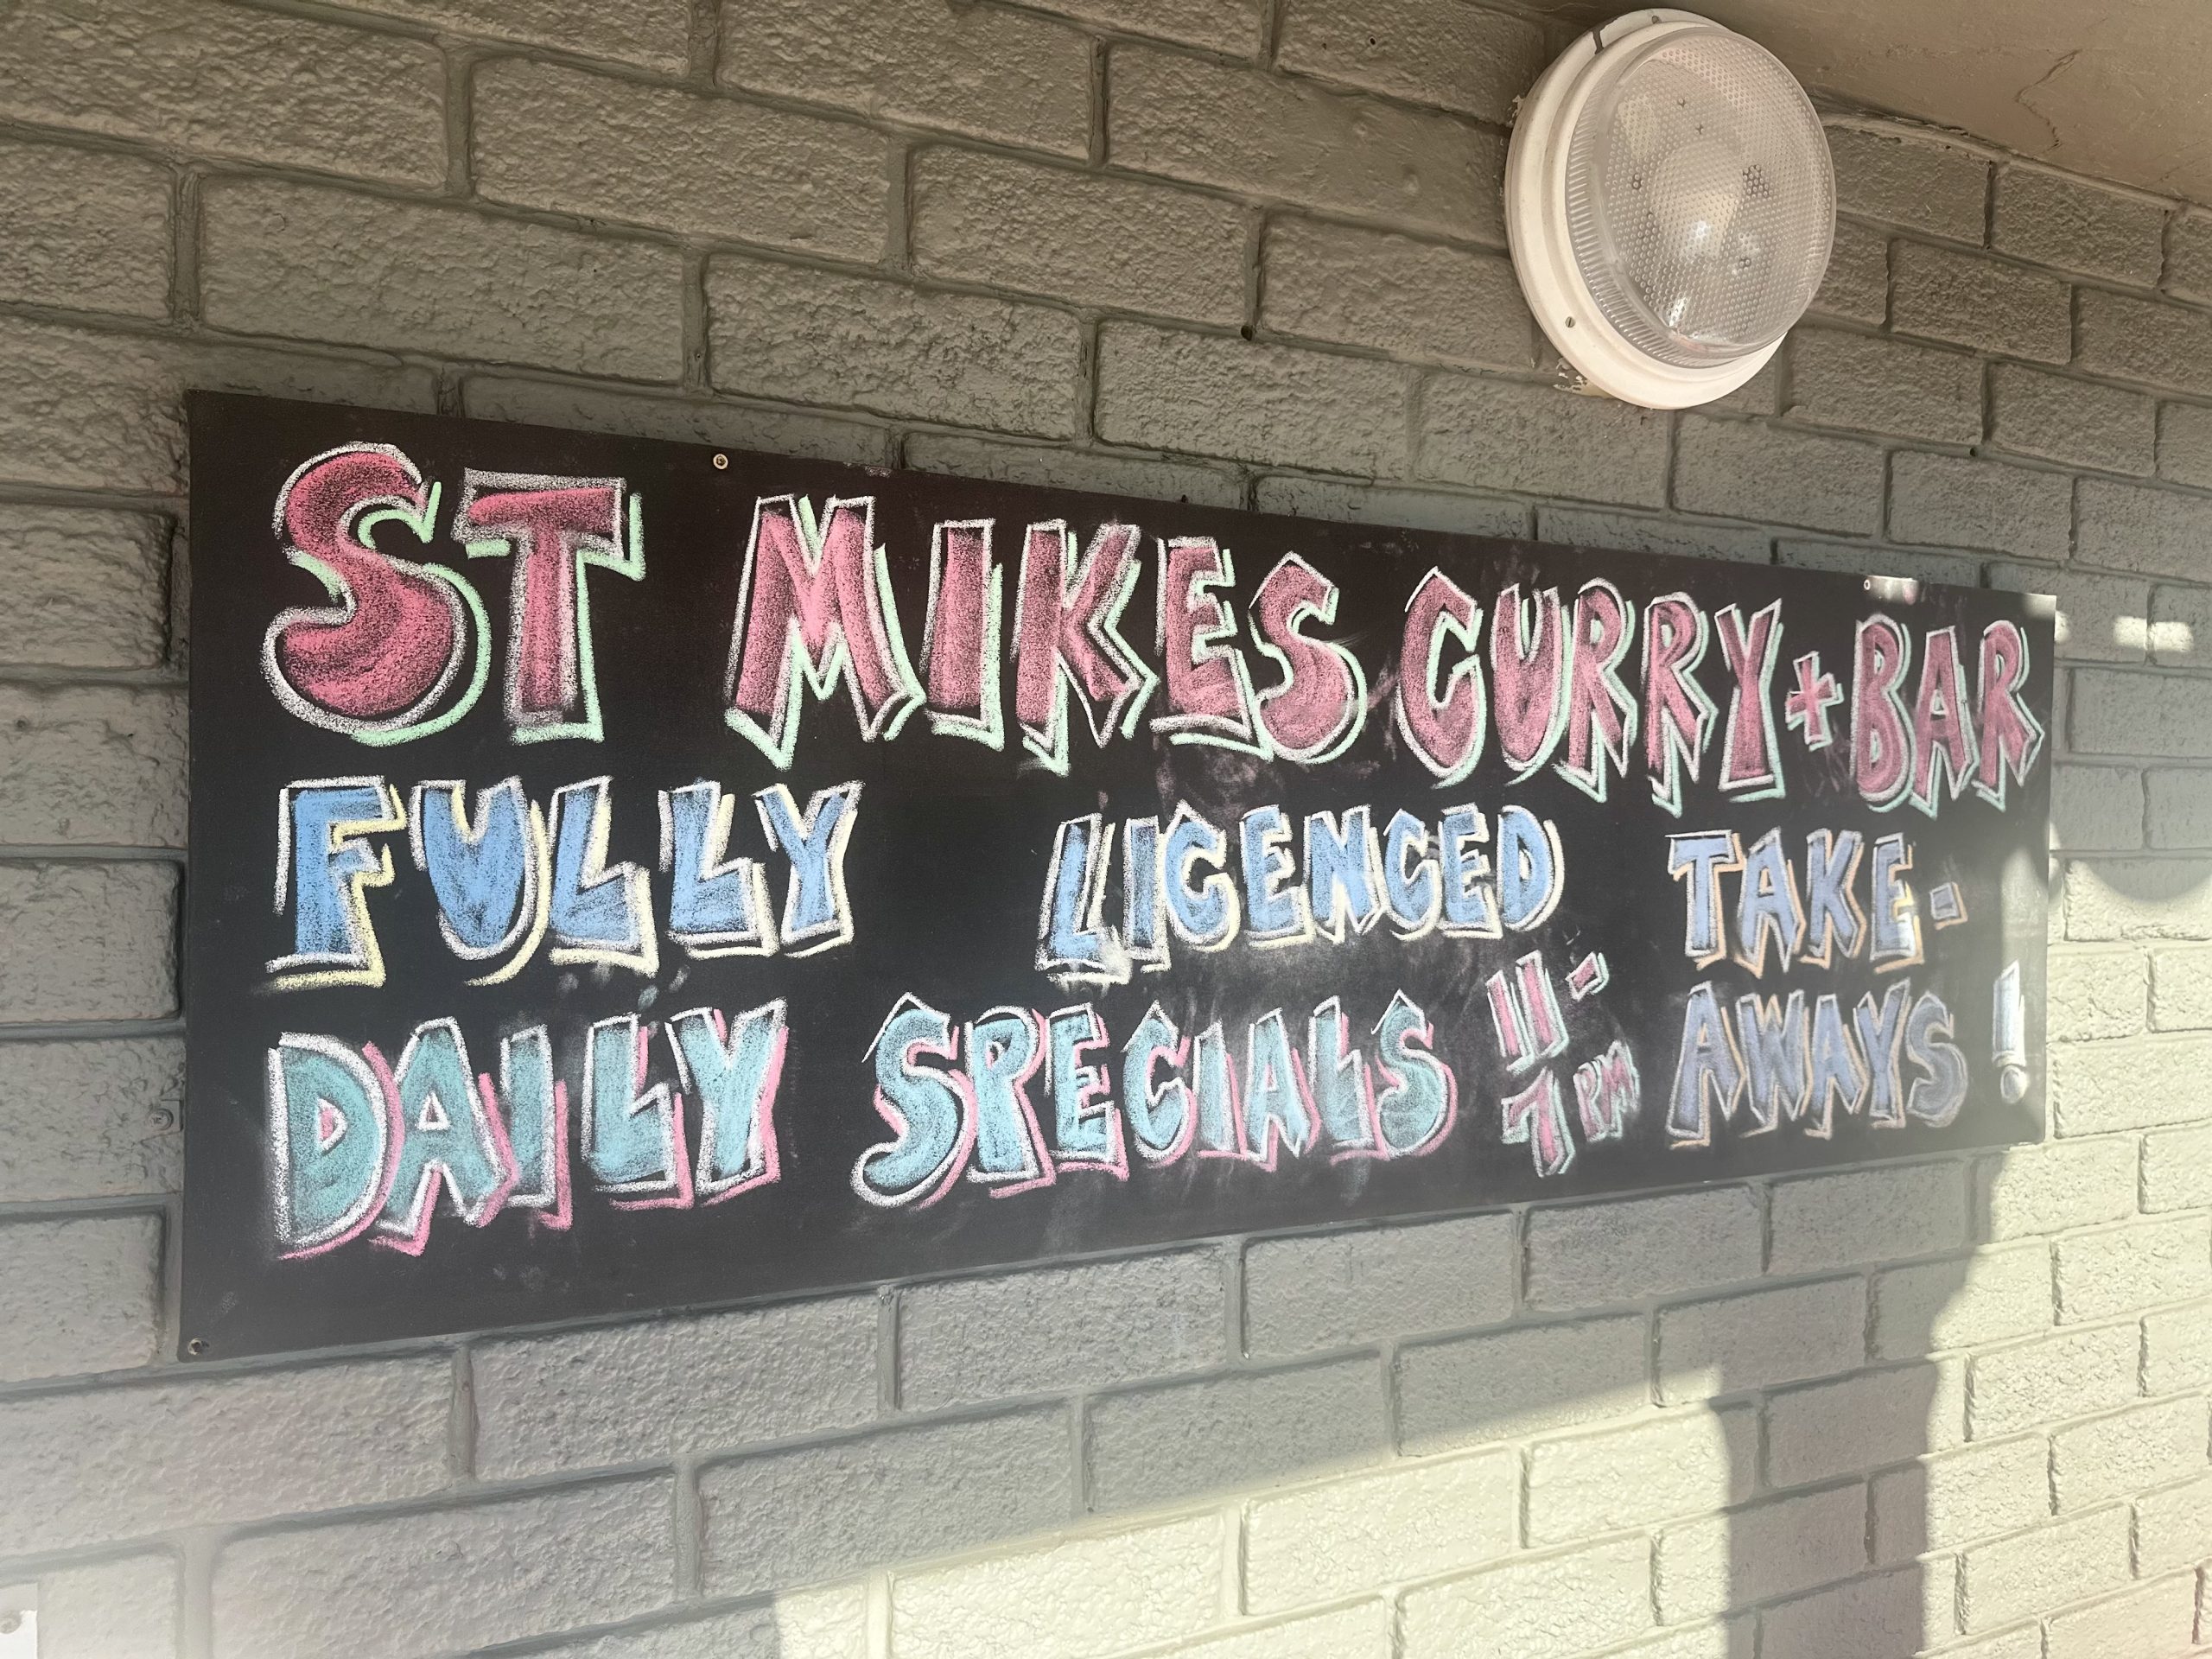 ST MIKES CURRY + BAR
FULLY LICENCED
DAILY SPECIALS 11-
7PM
TAKE-
AWAYS !